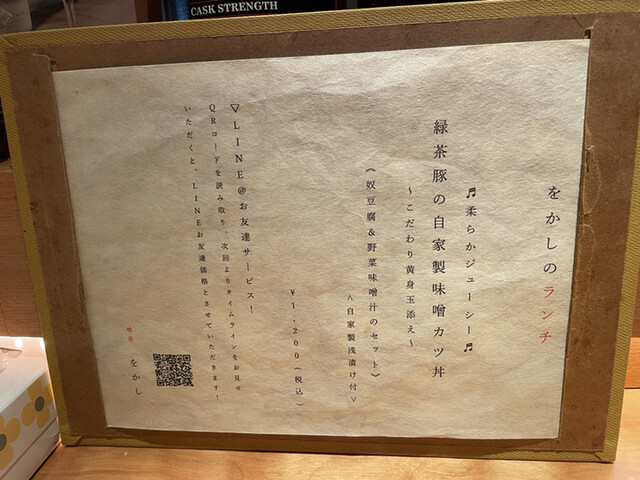 CASK STRENGTH
をかしのランチ
♬柔らかジューシー♬
緑茶豚の自家製味噌カツ丼
～こだわり黄身玉添え～
《奴豆腐&野菜味噌汁のセット》
<自家製浅漬け付>
¥1,200(税込)
▽LINE@お友達サービス!
QRコードを読み取り、次回よりタイムラインをお見せ
いただくと、LINEお友達価格とさせていただきます!
をかし